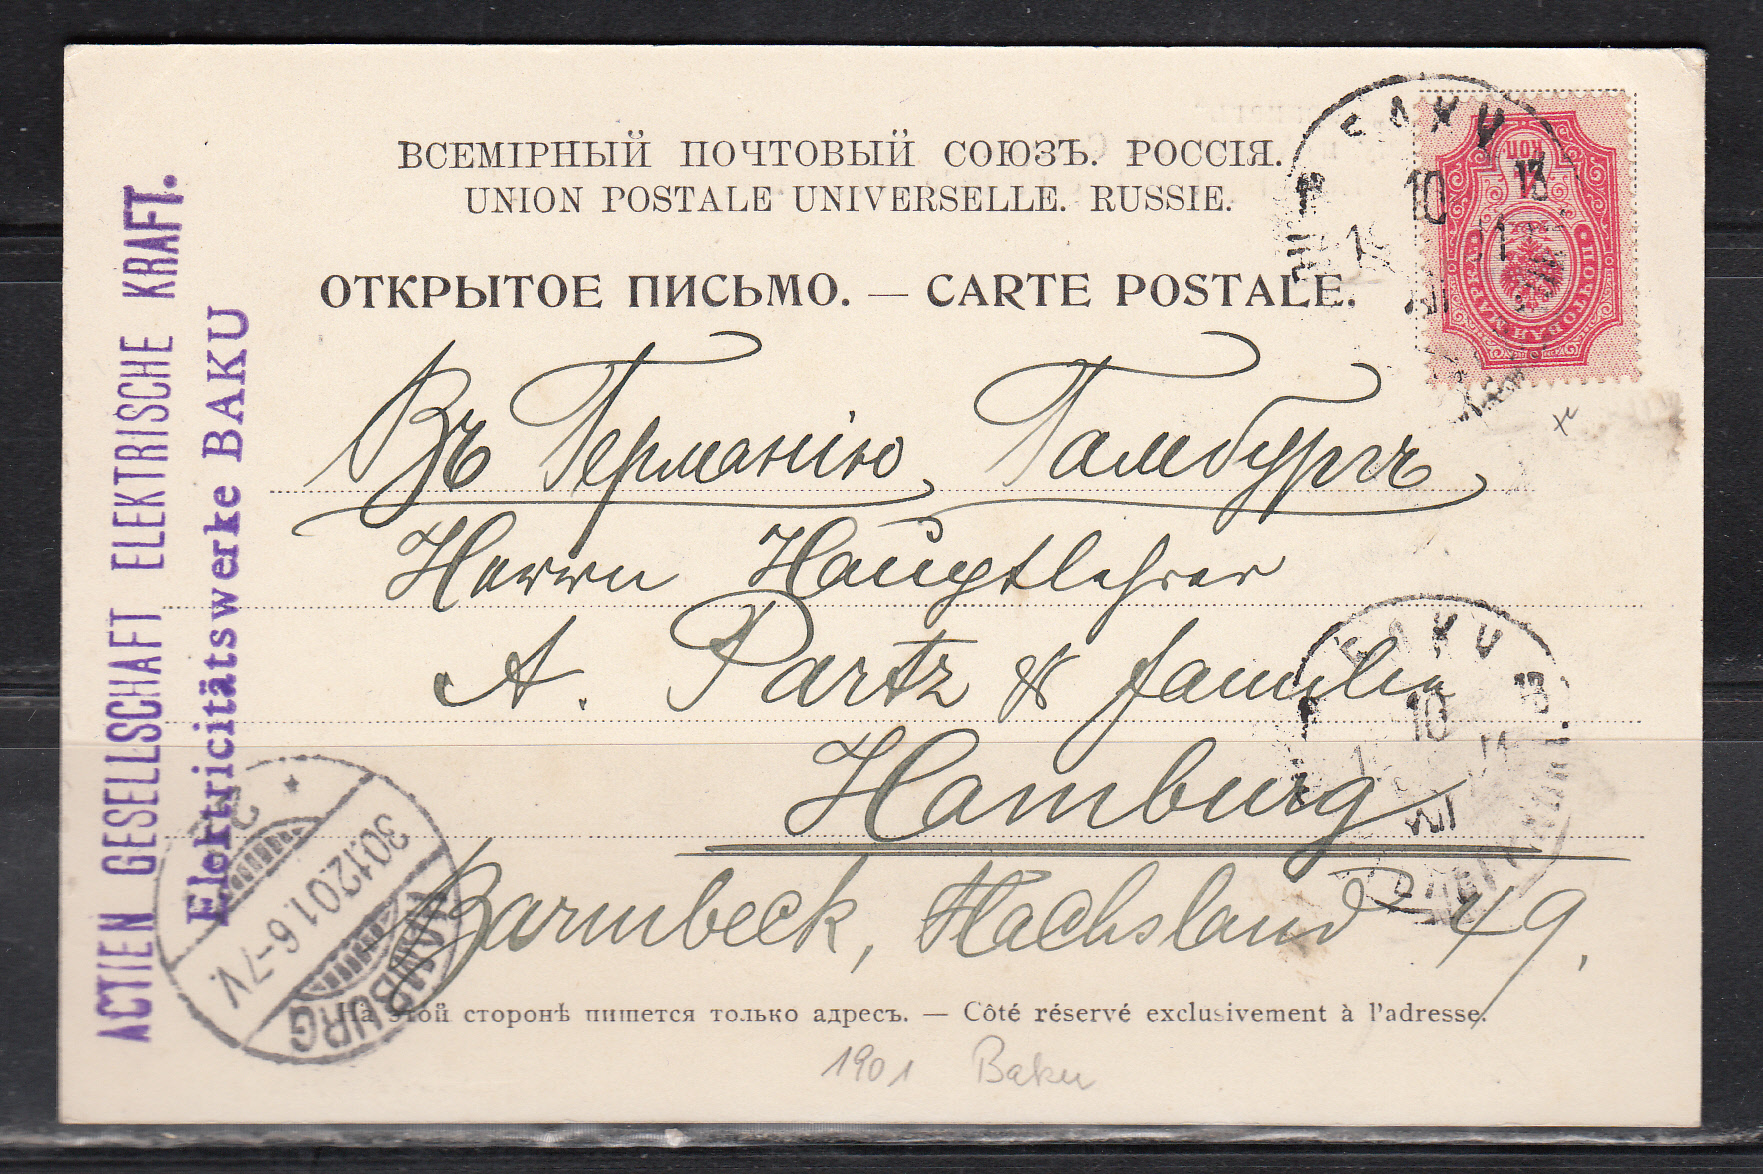 ВСЕМІРНЫЙ ПОЧТОВЫЙ СОЮЗЪ. РОССІЯ.
UNION POSTALE UNIVERSELLE. RUSSIE.
ОТКРЫТОЕ ПИСЬМО. — CARTE POSTALE.
Въ Германію, Гамбургъ,
Herrn Hauptlehrer
A. Partz & Familie
Hamburg
Barmbeck, Flachsland 49,
На этой сторонѣ пишется только адресъ. — Côté réservé exclusivement à l'adresse.
1901 Baku
ACTIEN GESELLSCHAFT ELEKTRISCHE KRAFT.
Elektricitätswerke BAKU
БАКУ
10
XII
КОП
ПОЧТОВАЯ МАРКА
БАКУ
10
XII
HAMBURG
30.12.01.6-7V.
* 2